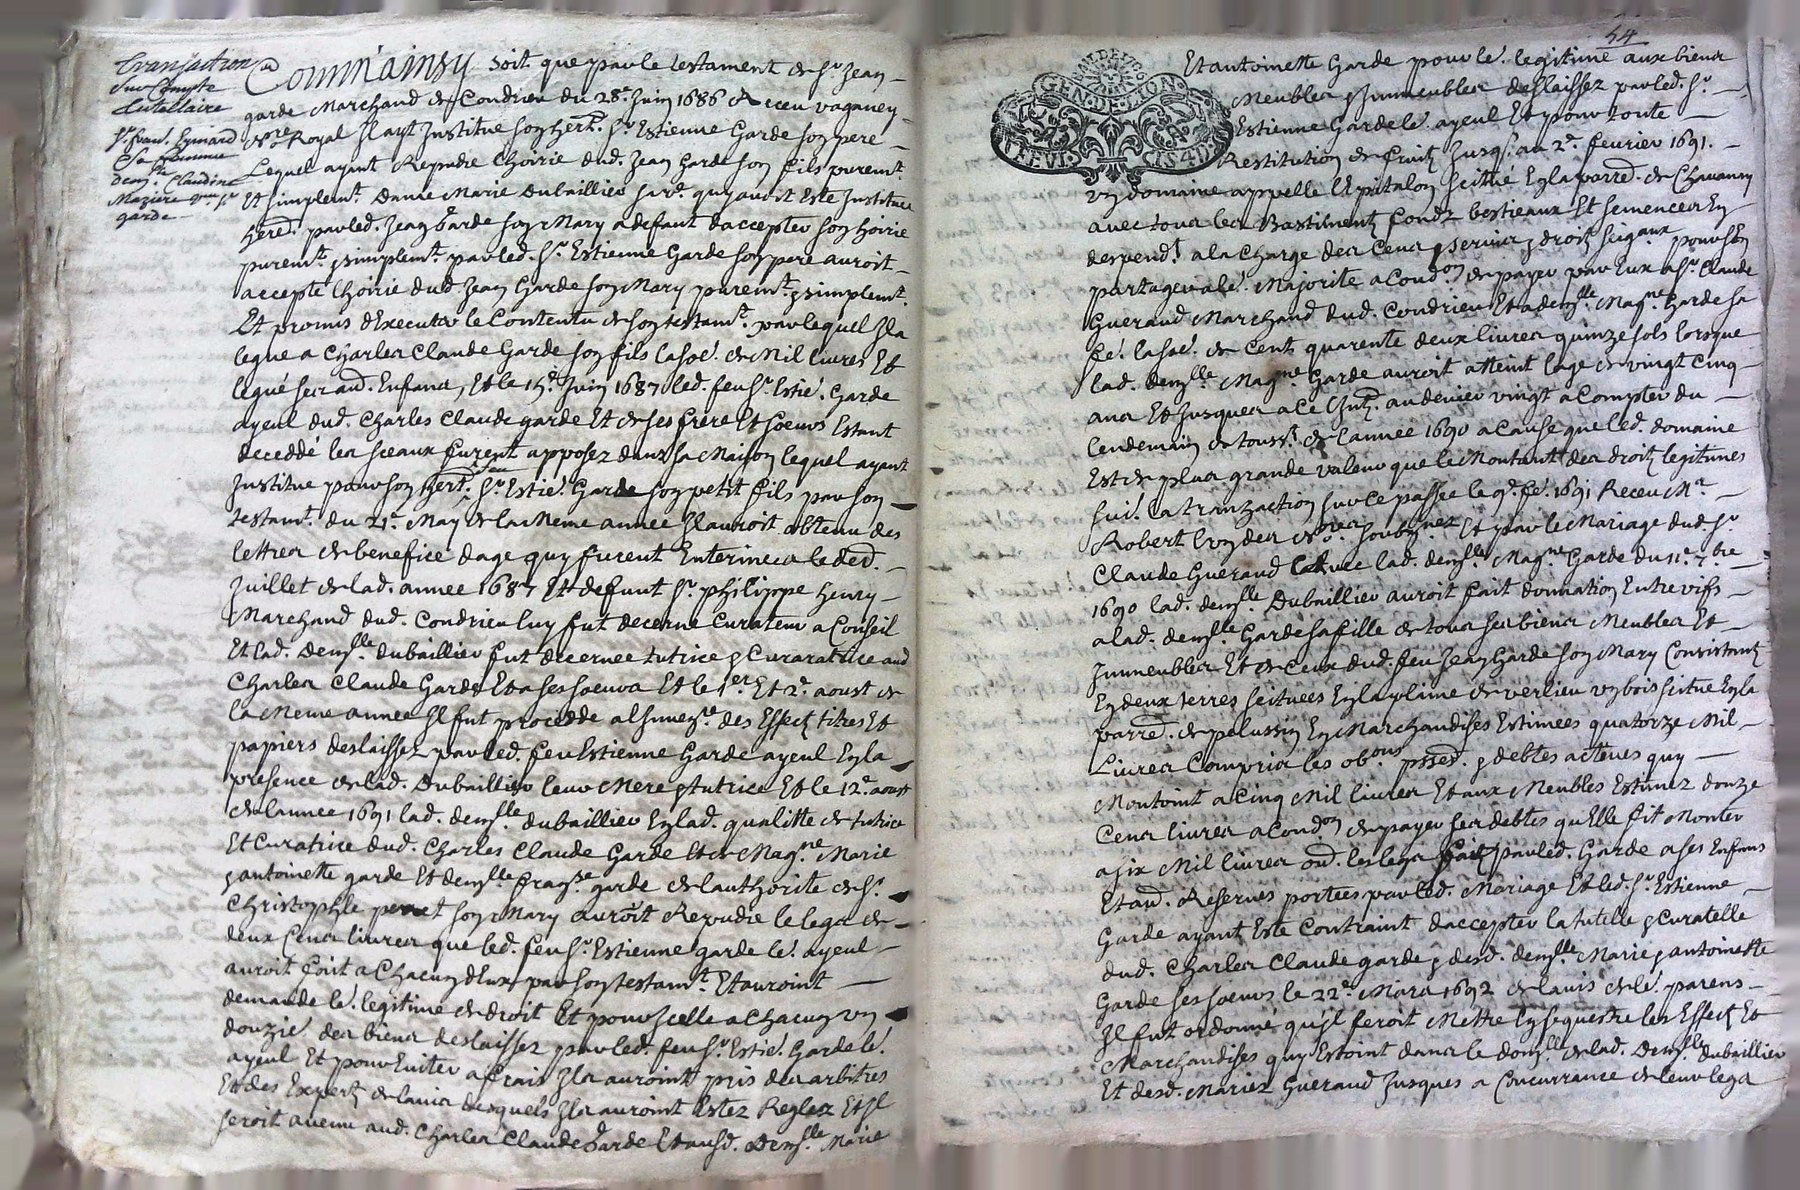 Transaction
sur Compte
tutellaire
Sr. fran. Eymard
Sa femme
demlle Claudine
Maziere
garde
Comm'ainsy soit que par le testament de Sr. Jean
garde Marchand de Condrieu du 28e Juin 1686 Receu vaganey
Nore Royal Il ayt Institué son hert. Sr. Estienne Garde son pere
Lequel ayant Repudié lhoirie dud. Jean Garde son fils puremt.
Et simplemt. danne Marie Dubaillier sa ve. quy avoit Esté Instituee
hered. par led. Jean Garde son Mary a defaut daccepter son hoirie
puremt. & simplemt. par led. Sr. Estienne Garde son pere auroit
accepté lhoirie dud. Jean Garde son Mary puremt. & simplemt.
Et promis dExecuter le Contentu de son testamt. par lequel Il a
legué a Charles Claude Garde son fils la soe. de Mil livres Et
legué ses aud. Enfans, Et le 15e Juin 1687 led. feu Sr. Estie. Garde
ayeul dud. Charles Claude garde Et de ses frere Et soeurs Estant
deceddé les sceaux furent apposez dans sa Maison lequel ayant
Institué pour son hert. Sr. Estie. Garde son petit fils par son
testamt. du 21e May de la Meme année Il auroit obtenu des
lettres de benefice dage quy furent Enterinees le ded.
Juillet de lad. année 1687 Et defunt Sr. philippe henry
Marchand dud. Condrieu luy fut decerné Curateur a Conseil
Et lad. demlle dubaillier fut decernee tutrice & Curaratrice aud
Charles Claude Garde Et a ses soeurs Et le 1er Et 2e aoust de
la Meme année Il fut proceddé a lInvere. des Effects titres Et
papiers deslaissez par led. feu Estienne Garde ayeul En la
presence de lad. Dubaillier leur Mere & tutrice Et le 12e aoust
de lannée 1691 lad. demlle dubaillier En lad. qualitté de tutrice
Et Curatrice dud. Charles Claude Garde Et de Magne Marie
& antoinette garde Et demlle frase garde de lauthorité de Sr.
Christophle perret son Mary auroit Repudié le legat de
deux Cens livres que led. feu Sr. Estienne garde le. ayeul
auroit fait a Chacun dEux par son testamt. Et auroint
demandé le. legitime de droit Et pour Icelle a Chacun un
douzie. des biens deslaissez par led. feu Sr. Estie. Garde le.
ayeul Et pour Eviter a frais Ils auroint pris des arbitres
Et des Experts de lavis desquels Ils auroint Estez Reglez Et Il
seroit avenu aud. Charles Claude Garde Et ausd. demlle Marie
54
GEN. DE LYON
Et antoinette Garde pour le. legitime aux biens
Meubles & Immeubles deslaissez par led. Sr.
Estienne Garde le. ayeul Et pour toute
Restitution de fruits Jusqs. au 2e fevrier 1691.
un domaine appellé lEpitalon scitué En la parred. de Chavanay
avec tous les Bastiments fonds bestieaux Et semences En
despendt. a la Charge des Cens & servis & droits seigaux pour sen
partager a le. Majorité a Condon de payer par Eux a Sr. Claude
Guerand Marchand dud. Condrieu Et a demlle Magne Garde sa
fe. la soe. de Cents quarente deux livres quinze sols lorsque
lad. demlle Magne Garde auroit atteint lage de vingt Cinq
ans Et Jusques a Ce Intz. au denier vingt a Compter du
lendemain de toussts de lannée 1690 a Cause que led. domaine
Est de plus grande valeur que le Montant des droits legitimes
suit. la tranzaction sur ce passée le 9e fe. 1691 Receu Me.
Robert lun des Nores soubznez Et par le Mariage dud. Sr.
Claude Guerand avec lad. demlle Magne Garde du 11e 7bre
1690 lad. demlle Dubaillier auroit fait donnation Entre vifs
a lad. demlle Garde sa fille de tous ses biens Meubles Et
Immeubles Et de Ceux dud. feu Jean Garde son Mary Consistants
En deux terres scituees En la plaine de verlieu un bois scitué En la
parred. de pelussin En Marchandises Estimees quatorze Mil
Livres Compris les obons & debtes actives quy
Montoint a Cinq Mil livres Et aux Meubles Estimez douze
Cens livres a Condon de payer ses debtes quElle fit Monter
a six Mil livres oud. les legs faits par led. Garde a ses Enfans
Et aud. Reserves portees par led. Mariage Et led. Sr. Estienne
Garde ayant Esté Contraint daccepter la tutelle & Curatelle
dud. Charles Claude garde & desd. demlle Marie & antoinette
Garde ses soeurs le 22e Mars 1692 de lavis de le. parens
Il fut ordonné quil feroit Mettre En sequestre les Effects Et
Marchandises quy Estoint dans le domlle de lad. demlle dubaillier
Et desd. Mariez Guerand Jusques a Concurrance de leur legs